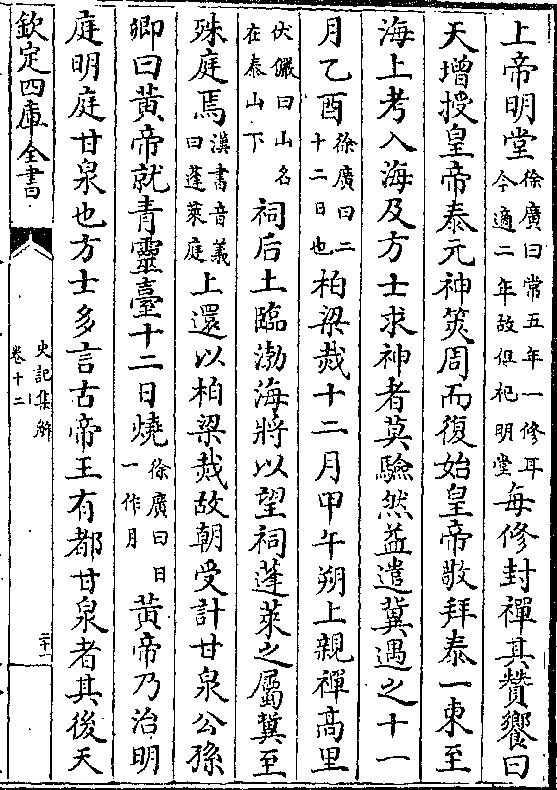 上帝明堂徐廣曰常五年一修耳今適二年故但祀明堂每修封禪其贊饗曰
天增授皇帝泰元神筴周而復始皇帝敬拜泰一東至
海上考入海及方士求神者莫驗然益遣冀遇之十一
月乙酉徐廣曰二十二日也柏梁烖十二月甲午朔上親禪高里
伏儼曰山名在泰山下祠后土臨渤海將以望祠蓬萊之屬冀至
殊庭焉漢書音義曰蓬萊庭上還以柏梁烖故朝受計甘泉公孫
卿曰黄帝就青靈臺十二日燒徐廣曰日一作月黄帝乃治明
庭明庭甘泉也方士多言古帝王有都甘泉者其後天
欽定四庫全書
史記集解
卷十二
二十一